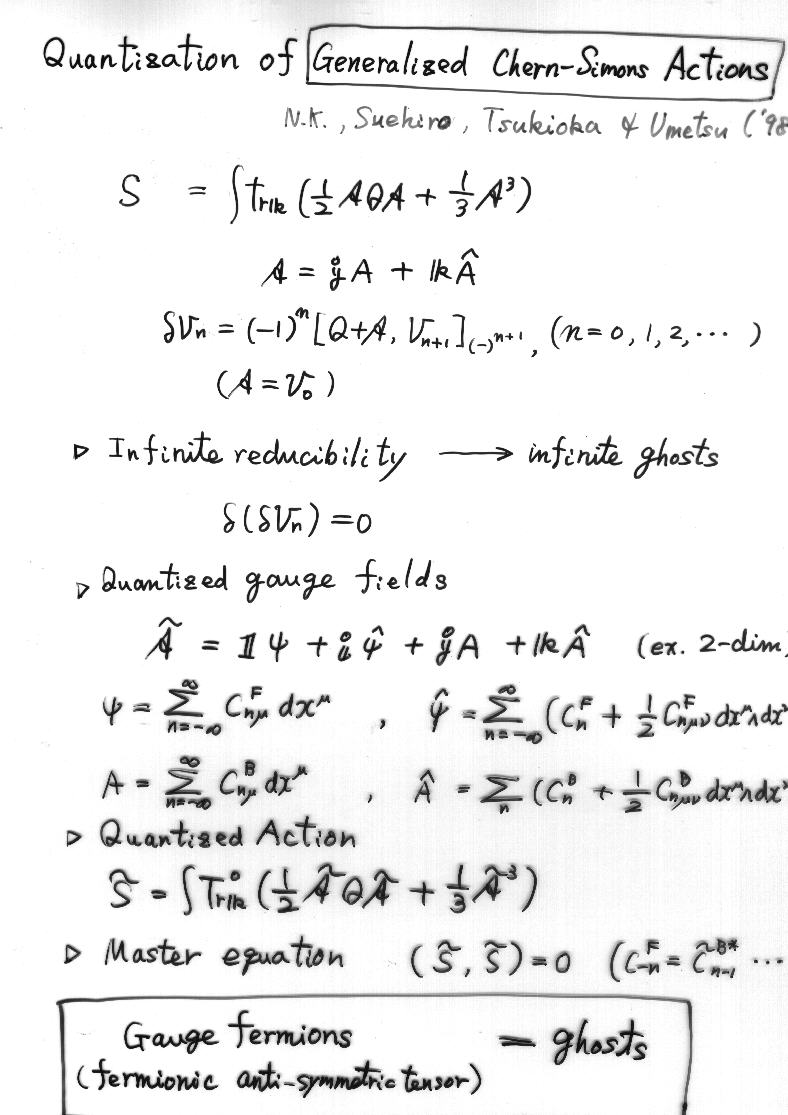 Quantization of Generalized Chern-Simons Actions
N.K., Suehiro, Tsukioka & Umetsu ('98
S = ∫Tr_𝕜 (½ 𝒜Q𝒜 + ⅓ 𝒜³)
𝒜 = j̊ A + 𝕜 Â
δV_n = (-1)^n [Q+𝒜, V_{n+1}]_{(-)^{n+1}}, (n = 0, 1, 2, ⋯ )
(𝒜 = V_0)
▷ Infinite reducibility ⟶ infinite ghosts
δ(δV_n) = 0
▷ Quantized gauge fields
𝒜̃ = 𝟙 ψ + i̊ ψ̂ + j̊ A + 𝕜 Â (ex. 2-dim)
ψ = Σ_{n=-∞}^{∞} C^F_{nμ} dx^μ , ψ̂ = Σ_{n=-∞}^{∞} (C^F_n + ½ C^F_{nμν} dx^μ∧dx^ν
A = Σ_{n=-∞}^{∞} C^B_{nμ} dx^μ , Â = Σ_n (C^B_n + ½ C^B_{nμν} dx^μ∧dx^ν
▷ Quantized Action
S̃ = ∫Tr°_𝕜 (½ 𝒜̃Q𝒜̃ + ⅓ 𝒜̃³)
▷ Master equation (S̃, S̃) = 0 (C^F_{-n} = C̃^{B*}_{n-1} ⋯
Gauge fermions = ghosts
(fermionic anti-symmetric tensor)